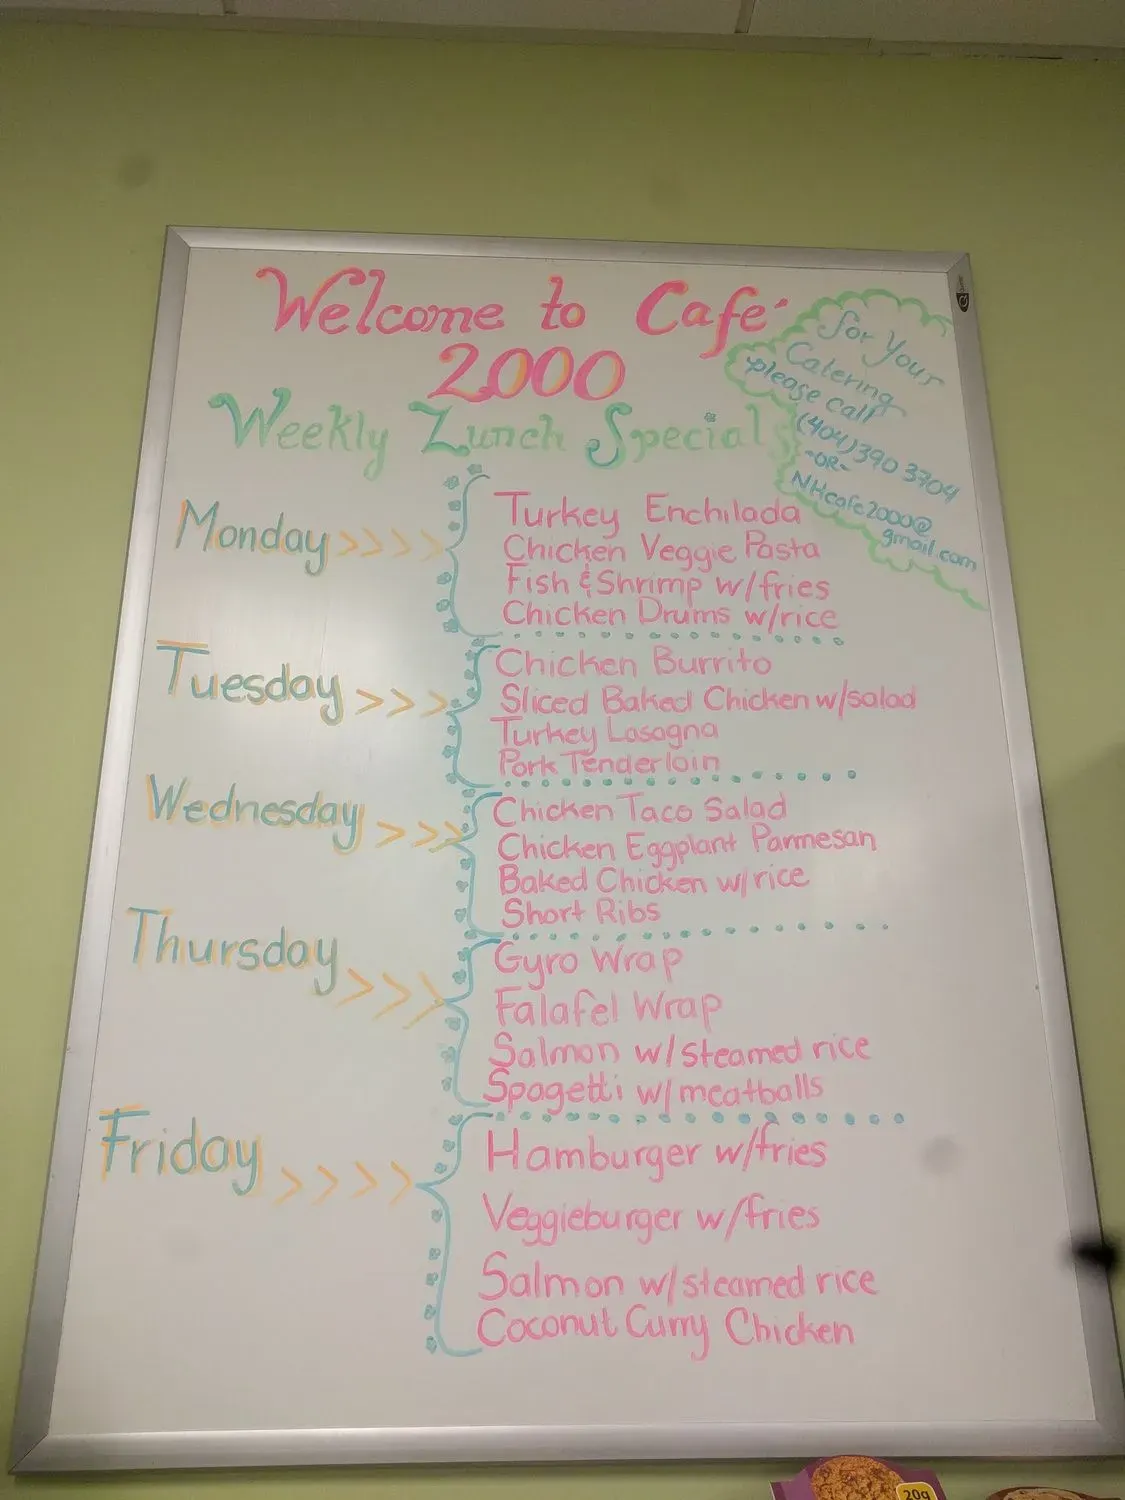 Welcome to Café
2000
Weekly Lunch Special
for Your
Catering
please call
(404) 390 3704
-OR-
NHcafe2000@
gmail.com
Monday >>>>
Turkey Enchilada
Chicken Veggie Pasta
Fish & Shrimp w/fries
Chicken Drums w/rice
Tuesday >>>
Chicken Burrito
Sliced Baked Chicken w/salad
Turkey Lasagna
Pork Tenderloin
Wednesday >>>
Chicken Taco Salad
Chicken Eggplant Parmesan
Baked Chicken w/rice
Short Ribs
Thursday >>>
Gyro Wrap
Falafel Wrap
Salmon w/steamed rice
Spagetti w/meatballs
Friday >>>>
Hamburger w/fries
Veggieburger w/fries
Salmon w/steamed rice
Coconut Curry Chicken
20g